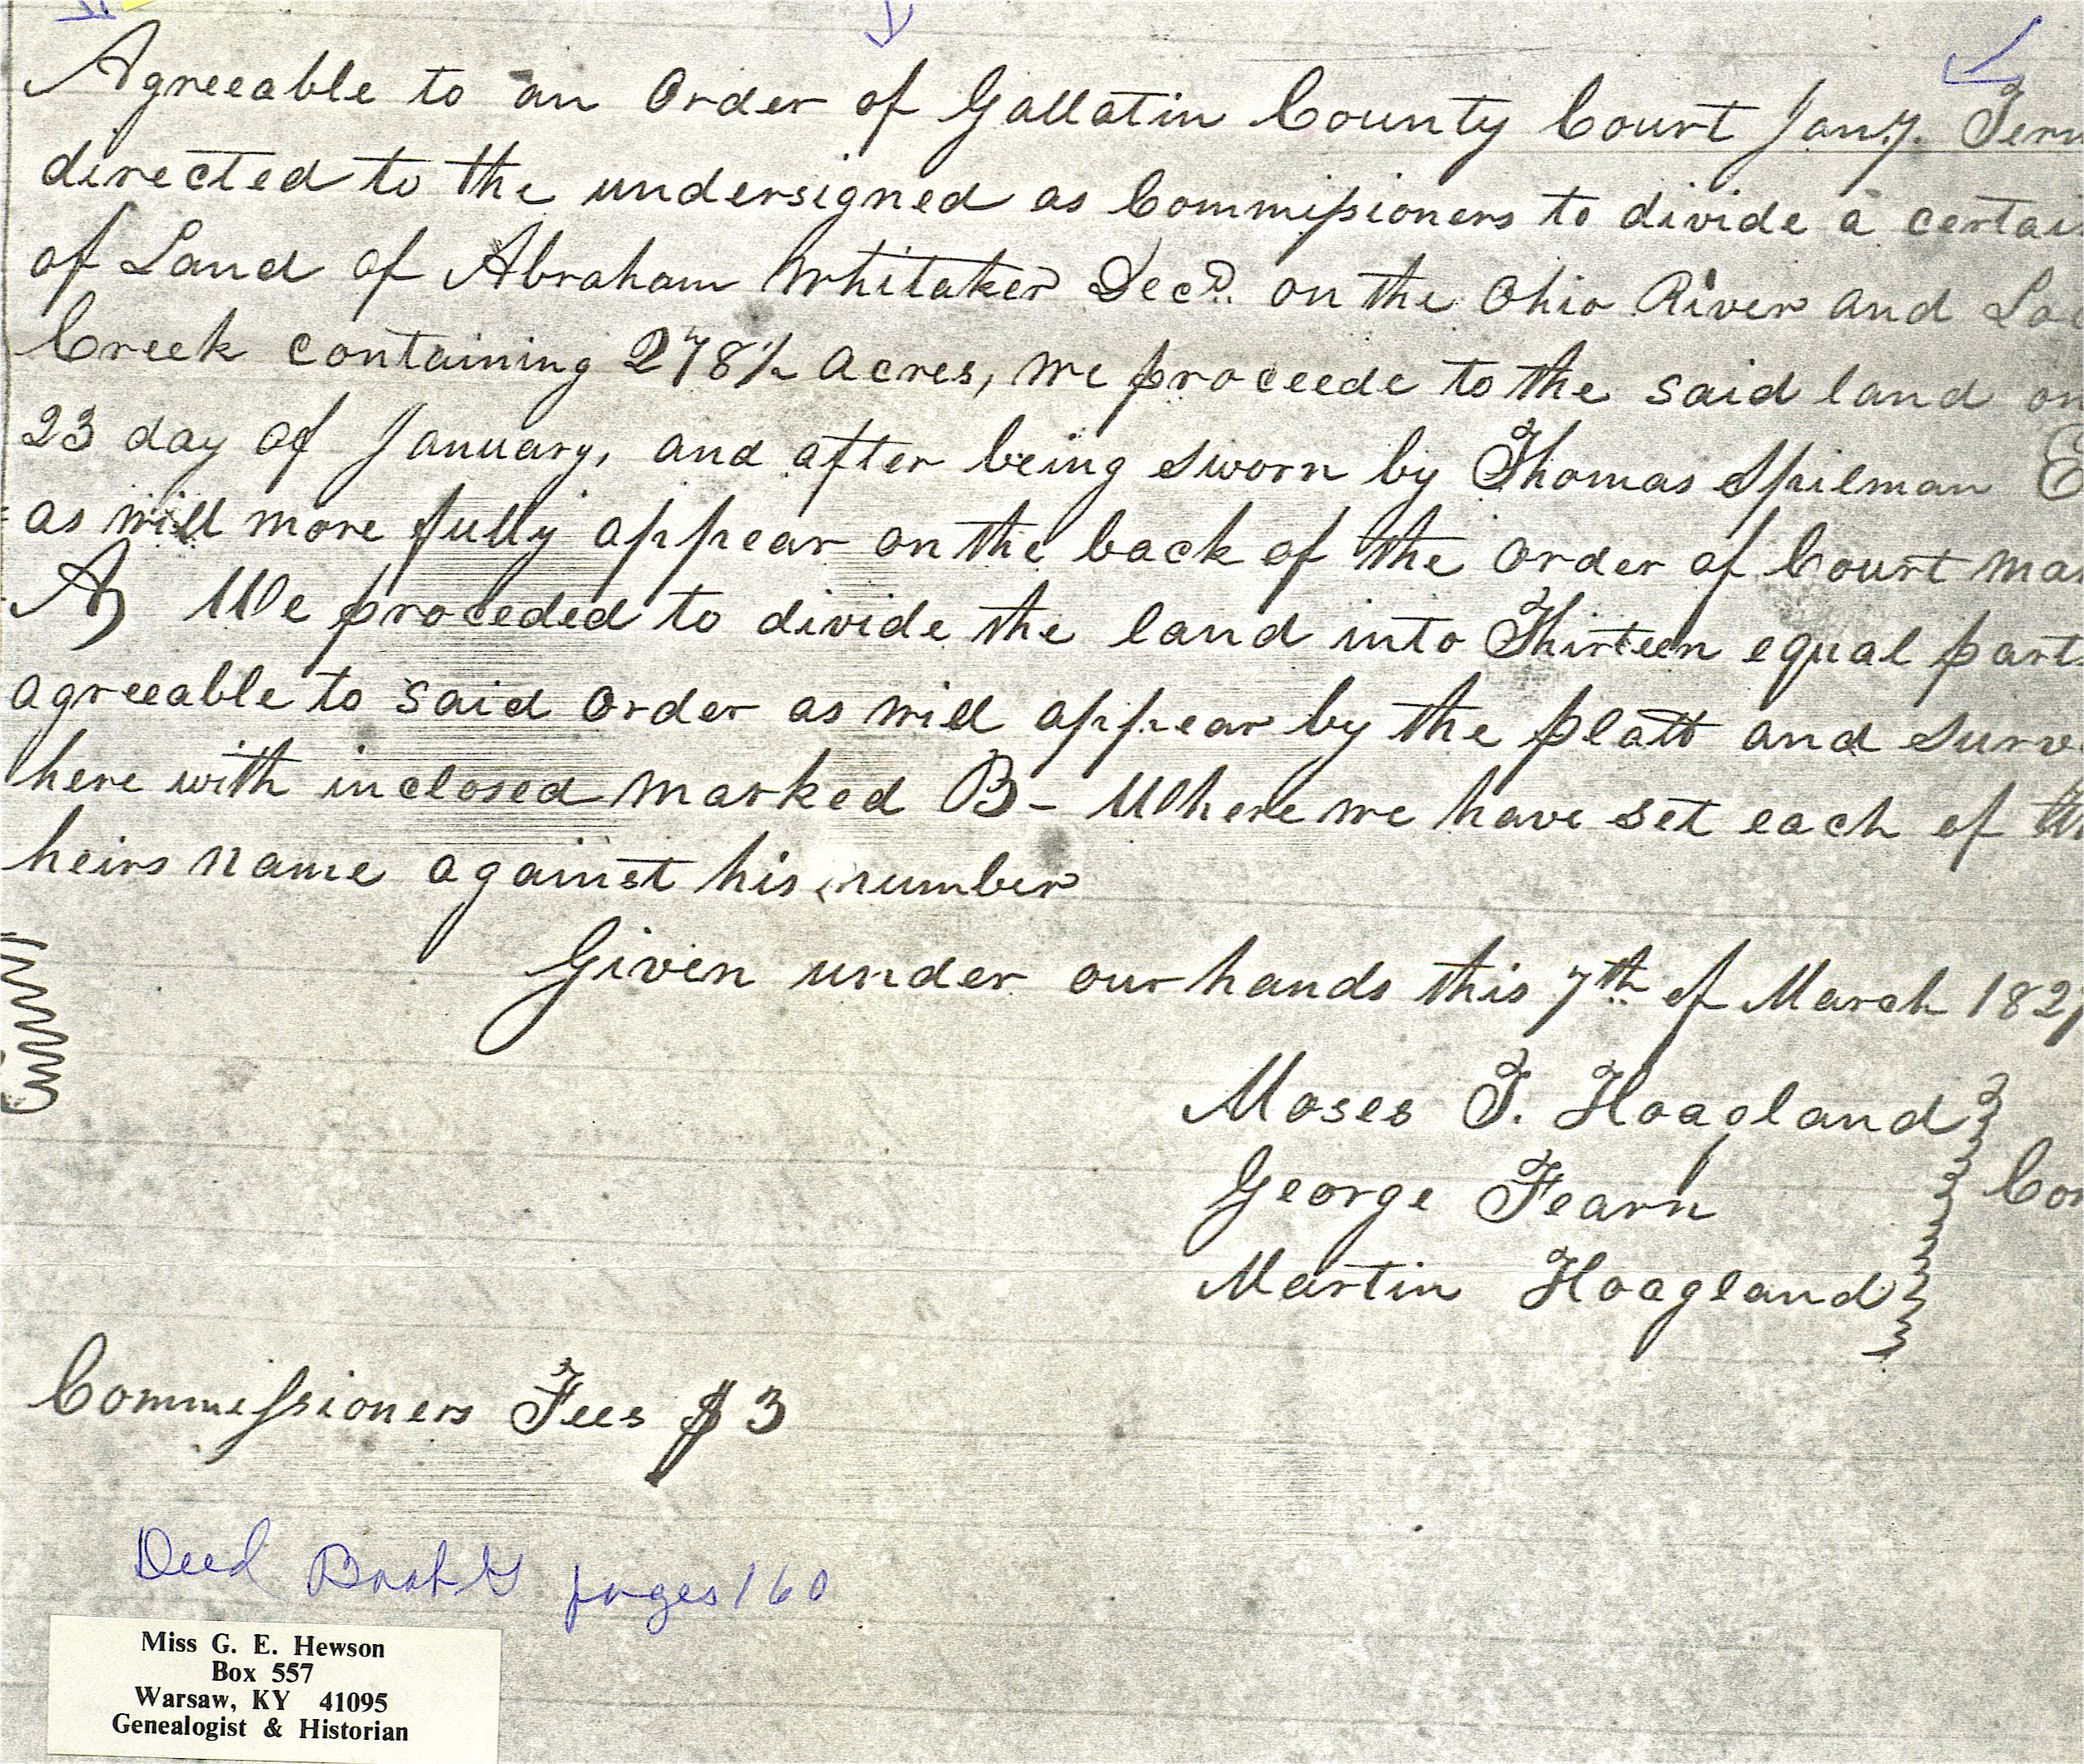 Agreeable to an Order of Gallatin County Court Jany. Term
directed to the undersigned as Commissioners to divide a certai
of Land of Abraham Whitaker Decd. on the Ohio River and
Creek containing 278½ acres, we proceede to the said land on
23 day of January, and after being sworn by Thomas Spilman E
as will more fully appear on the back of the order of Court mar
A, We proceded to divide the land into Thirteen equal parts
agreeable to said order as will appear by the platt and surve
here with inclosed marked B - Where we have set each of th
heirs name against his number
Given under our hands this 7th of March 1827
Moses T. Hoagland
George Fearn
Com
Martin Hoagland
Commissioners Fees $3
Deed Book G pages 160
Miss G. E. Hewson
Box 557
Warsaw, KY 41095
Genealogist & Historian